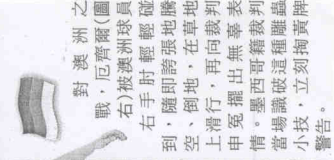 對澳洲之
戰，厄齊爾(圖
右)被澳洲球員
右手肘輕輕碰
到，隨即誇張地騰
空、倒地，在草地
上滑行，再向裁判
申冤擺出無辜表
情。墨西哥籍裁判
當場識破這種雕蟲
小技，立刻掏黃牌
警告。